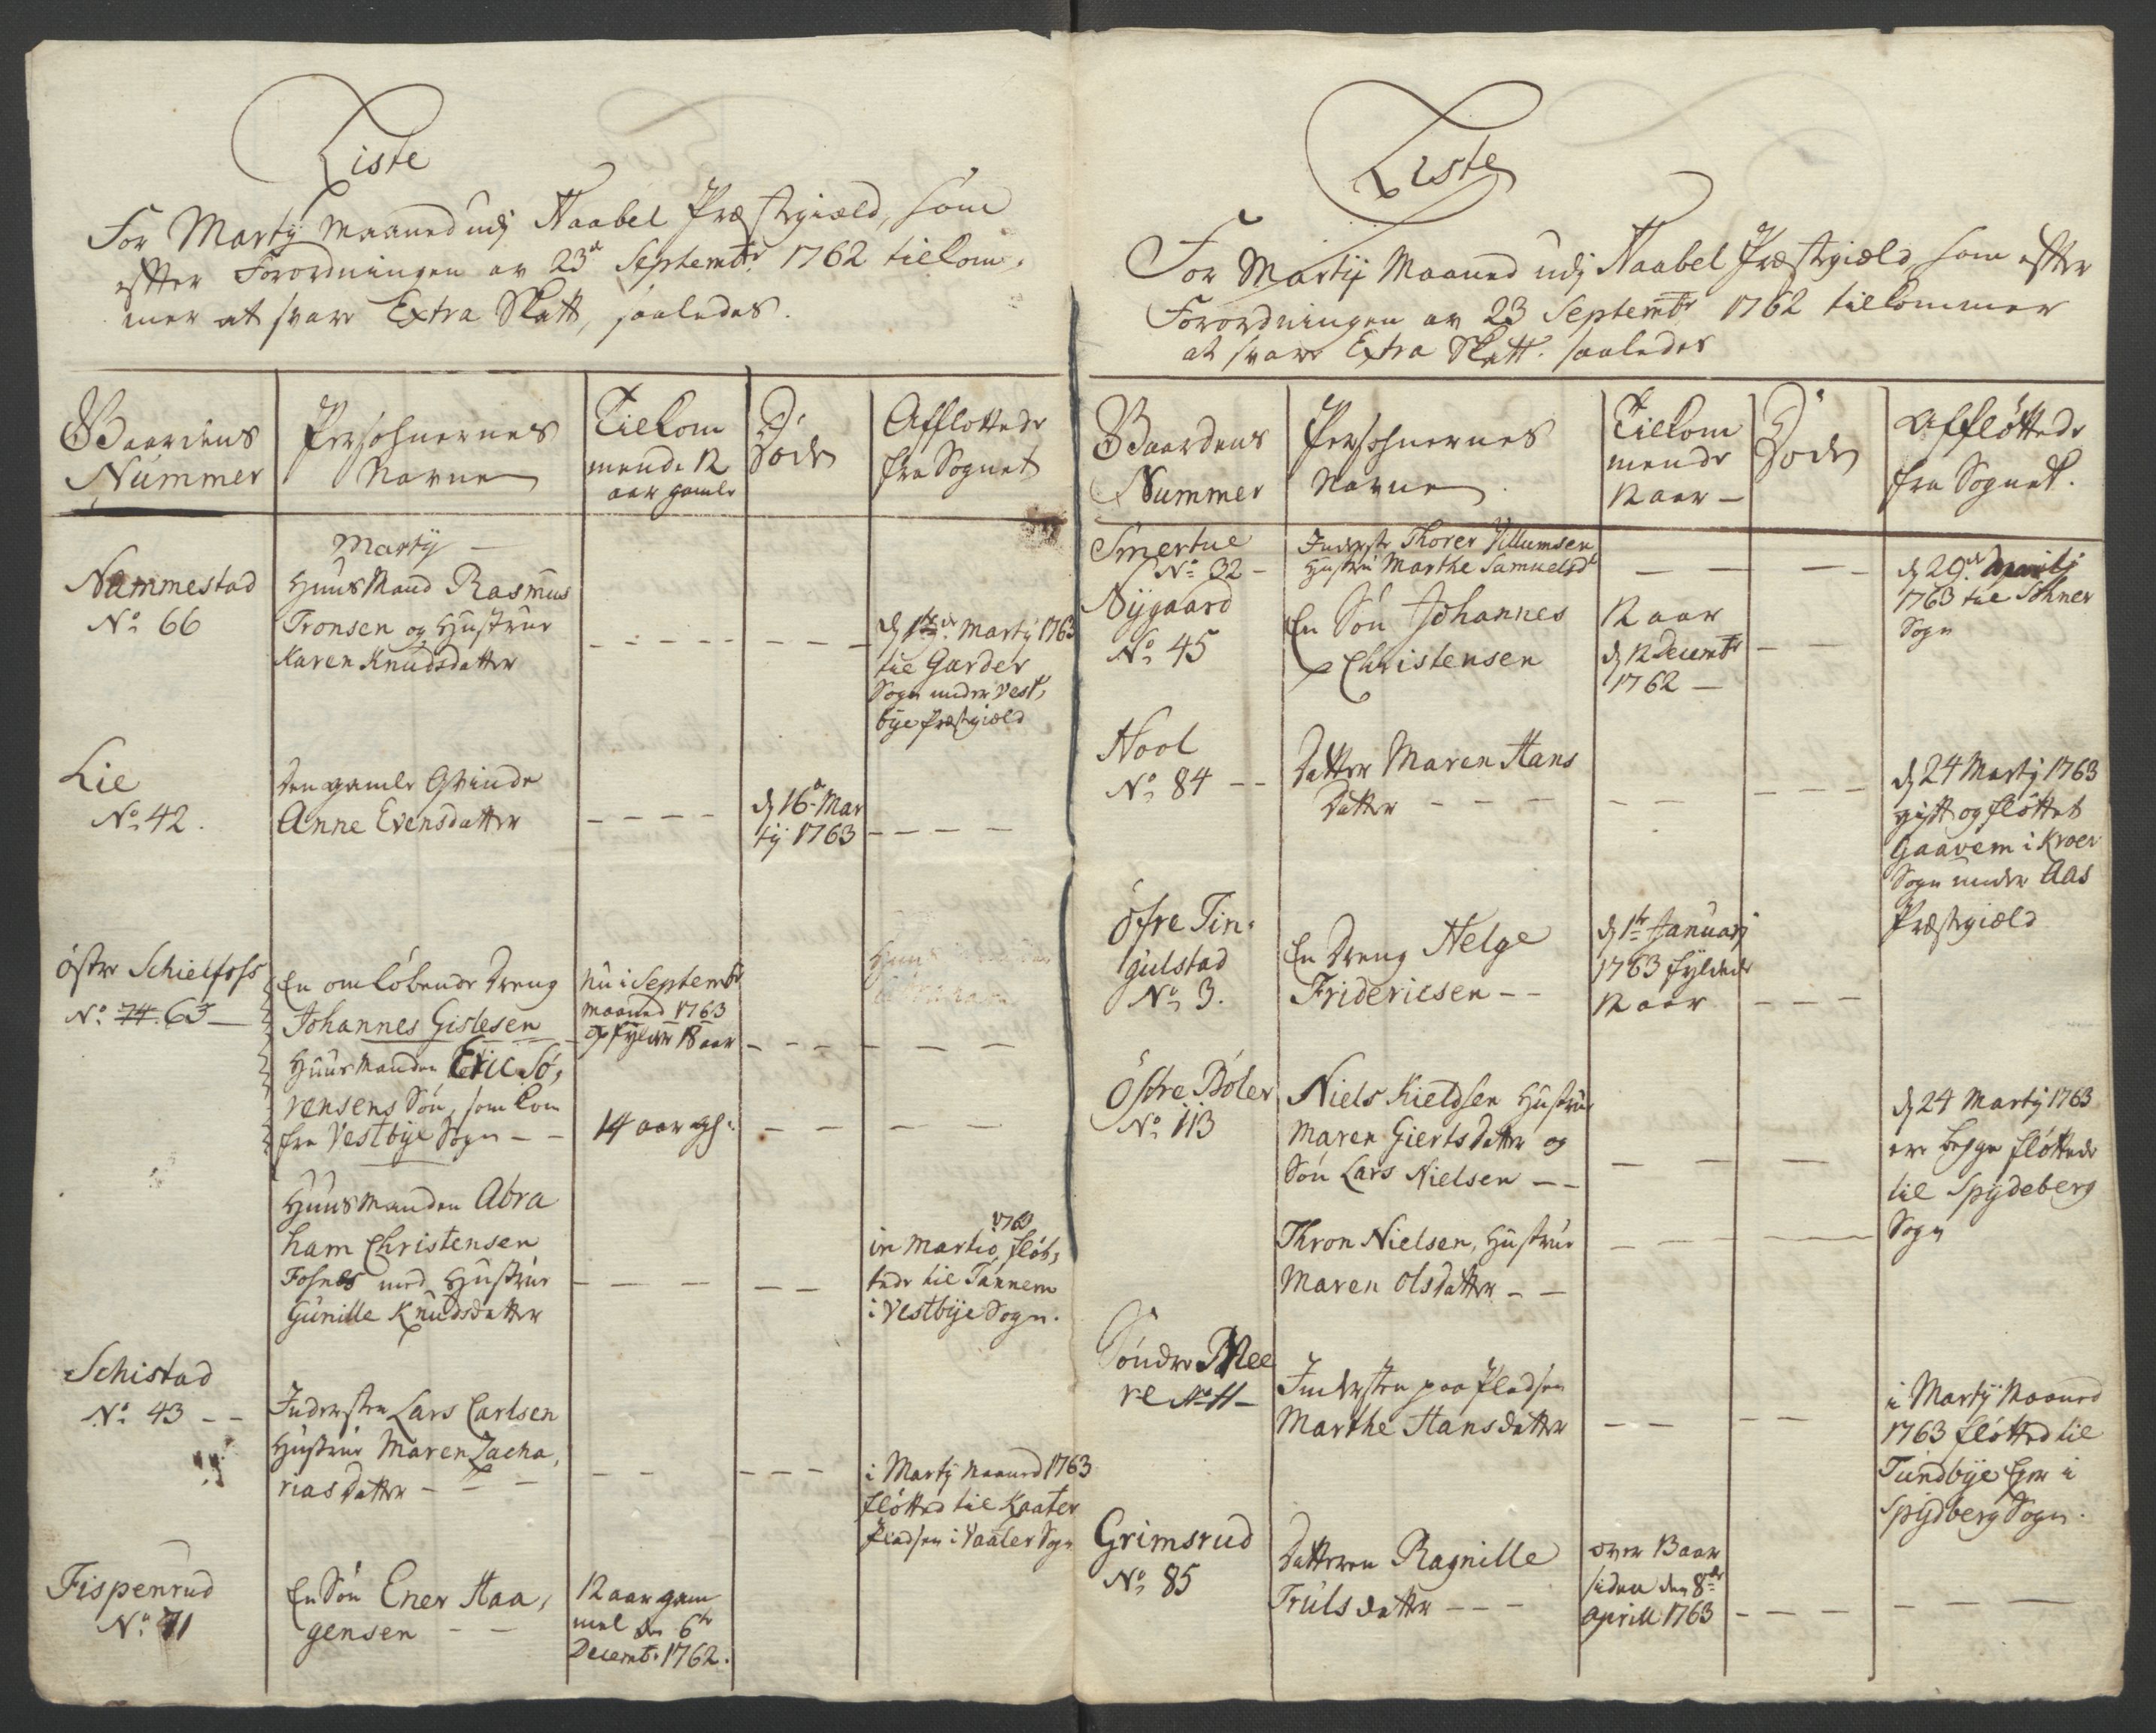 Liste
For Martÿ Maaned udj Haabel Præstegield, som
efter Forordningen av 23de Septembr 1762 tilkom-
mer at svare Extra Skatt, saaledes.
Gaardens
Nummer
Persohnernes
Navne
Tilkom
mende 12
aar gamle
Døde
Afflottede
fra Sognet
Martÿ
Nammestad
No 66
Huus Mand Rasmus
Tronsen og Hustrue
Karen Knudsdatter
d 1de Martÿ 1763
til Garder
Sogn under Vest,
bÿe Præstegield
Lie
No 42.
Den gamle Qvinde
Anne Evensdatter
d 16de Mar
tÿ 1763
østre Schielfoss
No 74. 63
En omløbende Dreng
Johannes Gislesen
nu i Septembr
Maaned 1763
opfylder 18 aar
Huusmanden Eric Sø,
rensens Søn, som kom
fra Vestbÿe Sogn
14 aar gl:
Huusmanden Abra
ham Christensen
Fosnes med Hustrue
Gunille Knudsdatter
in Martio 1763 fløt,
tede til Tannem
i Vestbÿe Sogn.
Schistad
No 43
Indersten Lars Carlsen
Hustrue Maren Zacha,
riasdatter
i Martÿ Maaned 1763
fløtted til Kaater
Pladsen i Vaaler Sogn
Fispenrud
No 71
En Søn Ener Haa,
gensen
12 aar gam
mel den 6te
Decembr 1762.
Liste
For Martij Maaned udj Haabel Præstegield, som efter
Forordningen av 23 Septembr 1762 tilkommer
at svare Extra Skatt. saaledes
Gaardens
Nummer
Persohnernes
Navne
Tilkom
mende
12 aar
Døde
Affløttede
fra Sognet.
Smertue
No 32
Inderste Thorer Villumsen
Hustru Marthe Samuelsd
d 29de
1763 til Schner
Sogn
Nÿgaard
No 45
En Søn Johannes
Christensen
12 aar
d 12 Decembr
1762
Hool
No 84
Datter Maren Hans
Datter
d 24 Martÿ 1763
gift og fløttet
Gaavem i Kroer
Sogn under Aas
Præstegield
Öfre Tin-
gulstad
No 3.
En Dreng Helge
Fridericsen
d 1te Januarj
1763 fyldede
12 aar
Østre Bøler
No 113
Niels Kieldsen Hustrue
Maren Giertsdatter og
Søn Lars Nielsen
Thron Nielsen, Hustrue
Maren Olsdatter
d 24 Martÿ 1763
ere begge fløttede
til Spydeberg
Sogn
Søndre Mee
re No 11
Indersten paa Pladsen
Marthe Hansdatter
i Martÿ Maaned
1763 fløtted til
Tundbÿe Eger i
Spÿdberg Sogn.
Grimsrud
No 85
Datteren Ragnille
Trulsdatter
over 13 aar
siden den 8de
Aprill 1763